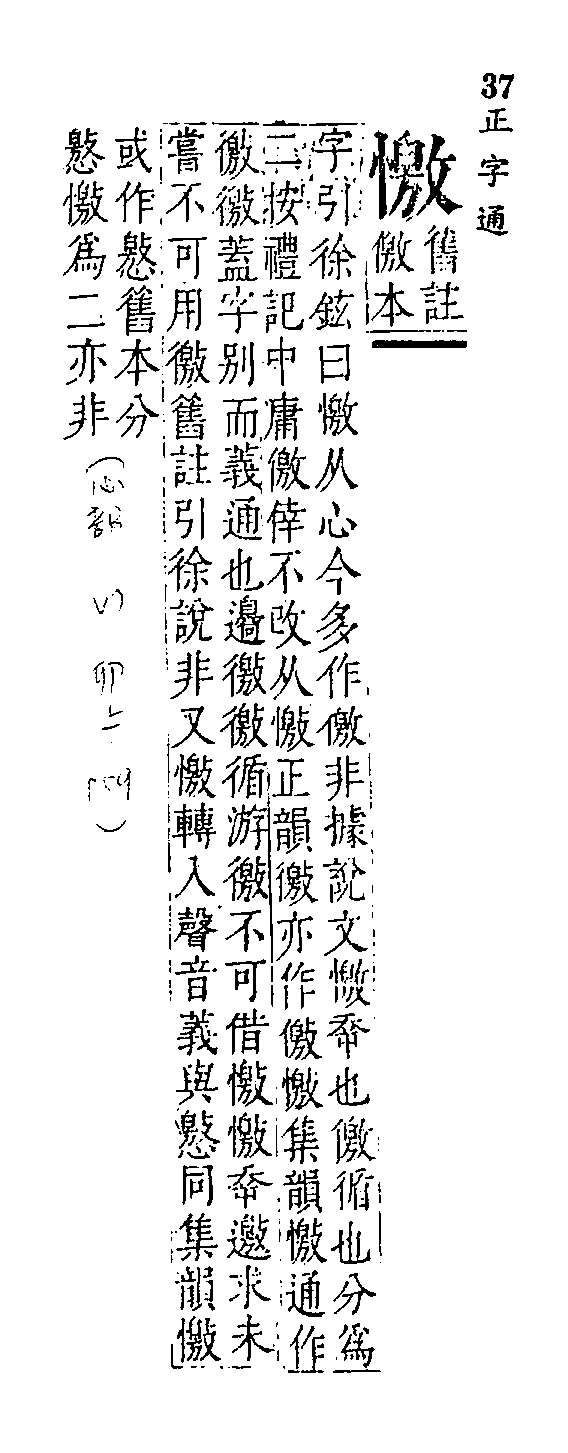 37
正字通
憿
舊註
儌本
字引徐鉉曰憿从心今多作儌非據說文憿㚔也儌循也分爲
二按禮記中庸徼倖不改从憿正韻徼亦作儌憿集韻憿通作
徼徼蓋字別而義通也邊徼徼循游徼不可借憿憿㚔邀求未
嘗不可用徼舊註引徐說非又憿轉入聲音義與憼同集韻憿
或作憼舊本分
憼憿爲二亦非